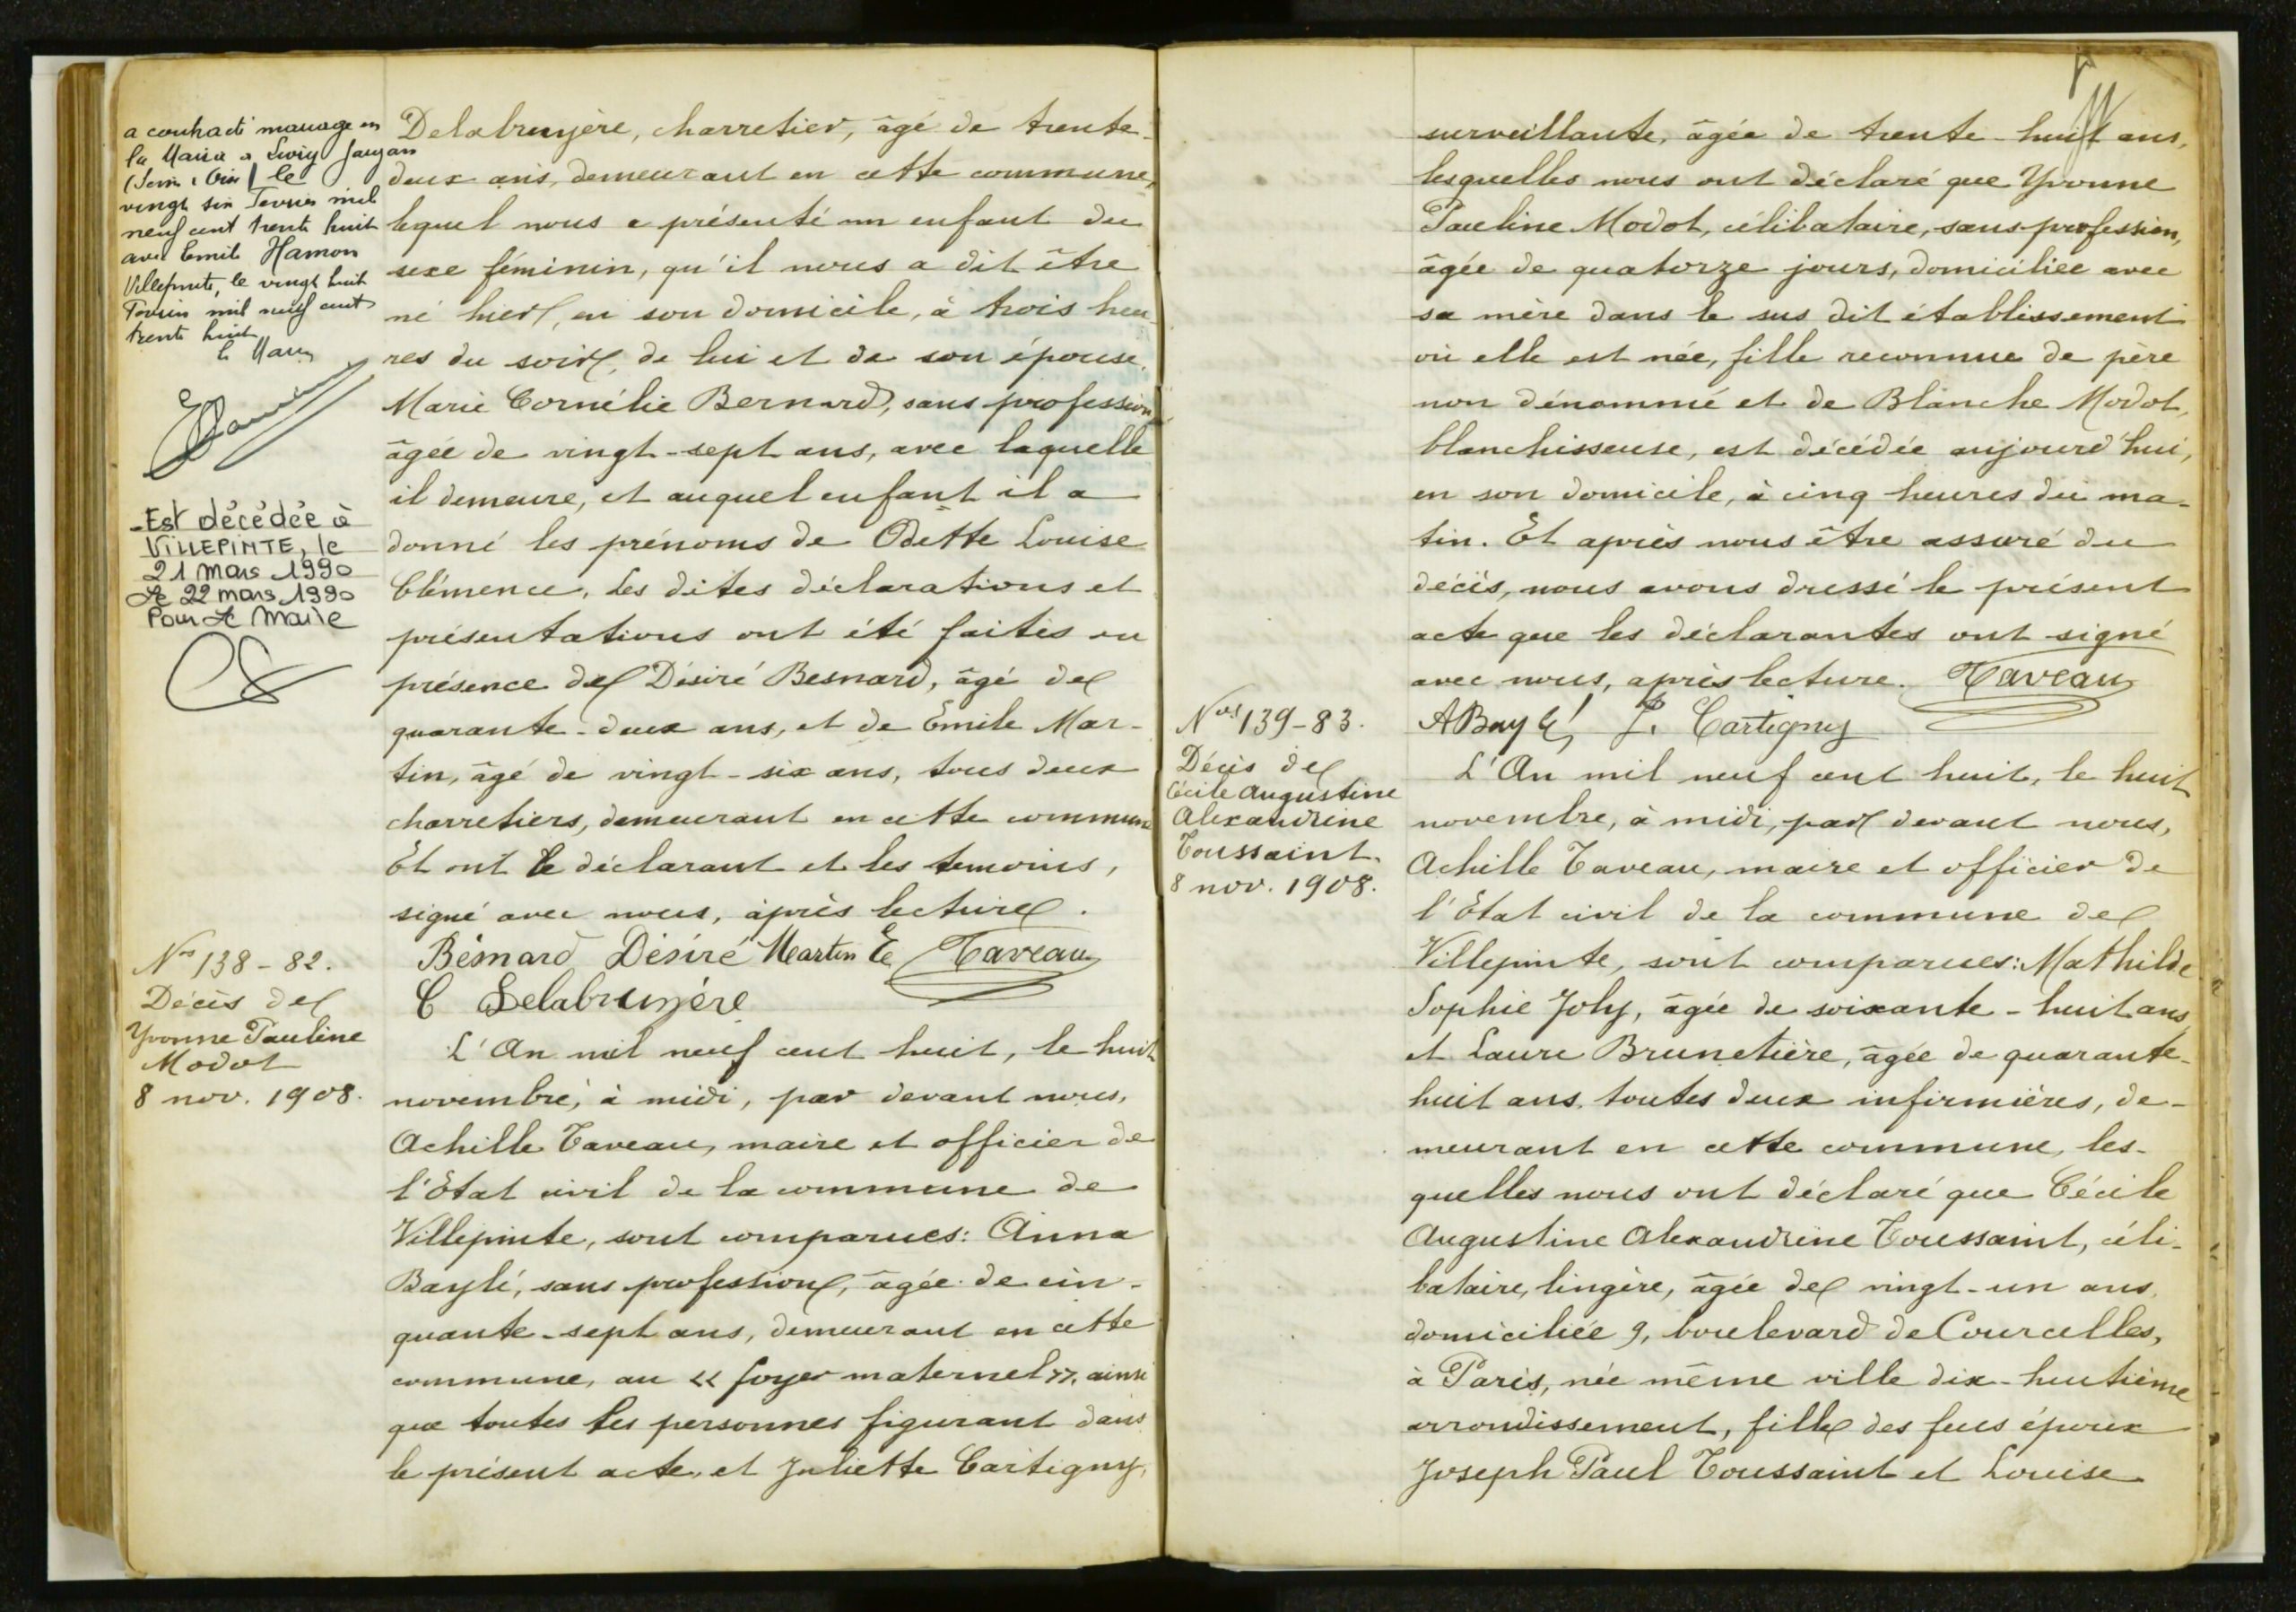 a contracté mariage en
la Mairie de Livry Gargan
(Seine & Oise) le
vingt six Février mil
neuf cent trente huit
avec Emile Hamon
Villepinte, le vingt huit
Février mil neuf cent
trente huit
le Maire
Est décédée à
VILLEPINTE, le
21 mars 1990
Le 22 mars 1990
Pour Le Maire
Delabruyère, charretier, âgé de trente-
deux ans, demeurant en cette commune,
lequel nous a présenté un enfant du
sexe féminin, qu'il nous a dit être
né hier, en son domicile, à trois heu-
res du soir, de lui et de son épouse,
Marie Cornélie Bernard, sans profession,
âgée de vingt-sept ans, avec laquelle
il demeure, et auquel enfant il a
donné les prénoms de Odette Louise
Clémence. Les dites déclarations et
présentations ont été faites en
présence de Désiré Besnard, âgé de
quarante-deux ans, et de Emile Mar-
tin, âgé de vingt-six ans, tous deux
charretiers, demeurant en cette commune
Et ont le déclarant et les temoins,
signé avec nous, après lecture.
Besnard Désiré Martin E Taveau
C Delabruyère
Nos 138-82.
Décès de
Yvonne Pauline
Modot
8 nov. 1908.
L'An mil neuf cent huit, le huit
novembre, à midi, par devant nous,
Achille Taveau, maire et officier de
l'Etat civil de la commune de
Villepinte, sont comparues: Anna
Baylé, sans profession, âgée de cin-
quante-sept ans, demeurant en cette
commune, au « foyer maternel », ainsi
que toutes les personnes figurant dans
le présent acte, et Juliette Cartigny,
surveillante, âgée de trente-huit ans,
lesquelles nous ont déclaré que Yvonne
Pauline Modot, célibataire, sans profession,
âgée de quatorze jours, domiciliée avec
sa mère dans le sus dit établissement
où elle est née, fille reconnue de père
non dénommé et de Blanche Modot,
blanchisseuse, est décédée aujourd'hui,
en son domicile, à cinq heures du ma-
tin. Et après nous être assuré du
décès, nous avons dressé le présent
acte que les déclarantes ont signé
avec nous, après lecture. Taveau
ABaylé J. Cartigny
Nos 139-83.
Décès de
Cécile Augustine
Alexandrine
Toussaint.
8 nov. 1908.
L'An mil neuf cent huit, le huit
novembre, à midi, par devant nous,
Achille Taveau, maire et officier de
l'Etat civil de la commune de
Villepinte, sont comparues: Mathilde
Sophie Joly, âgée de soixante-huit ans
et Laure Brunetière, âgée de quarante-
huit ans, toutes deux infirmières, de-
meurant en cette commune, les-
quelles nous ont déclaré que Cécile
Augustine Alexandrine Toussaint, céli-
bataire, lingère, âgée de vingt-un ans,
domiciliée 9, boulevard de Courcelles,
à Paris, née même ville dix-huitième
arrondissement, fille des feus époux
Joseph Paul Toussaint et Louise